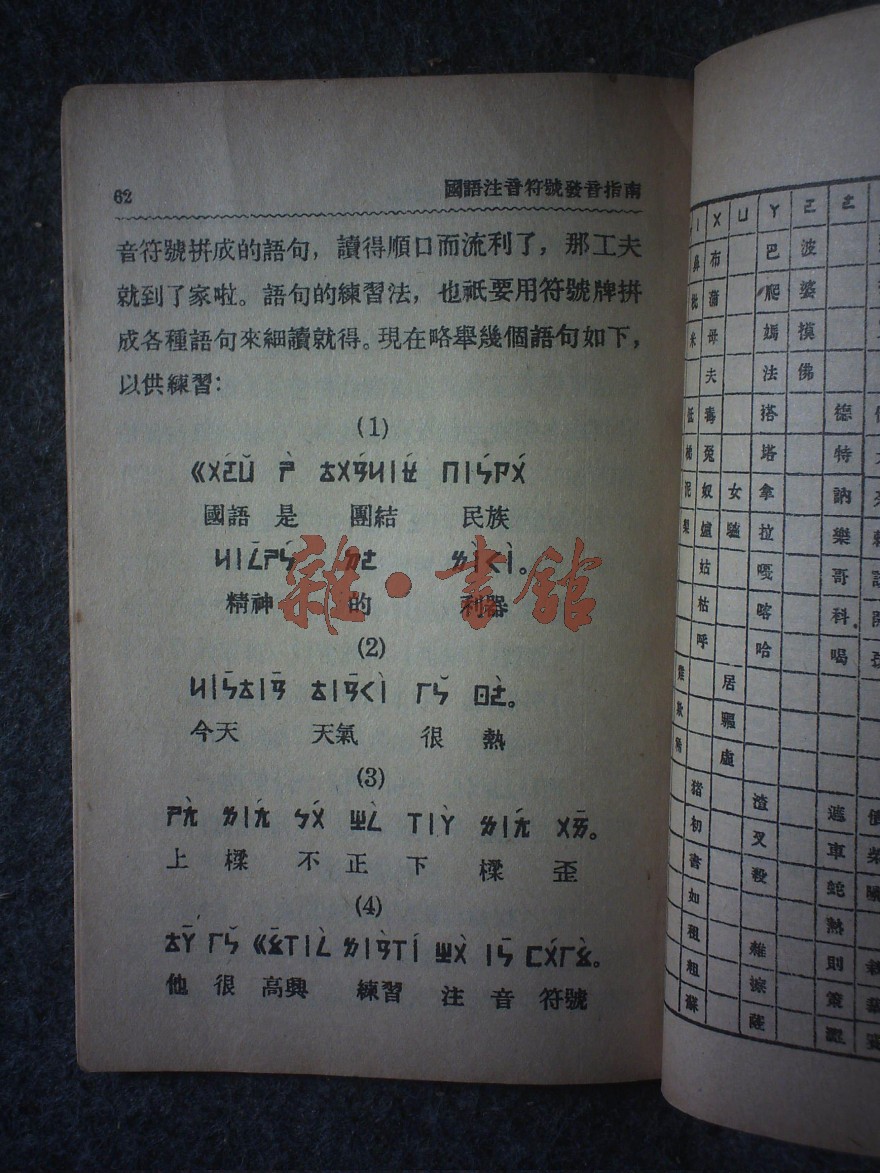 62 國語注音符號發音指南
音符號拼成的語句，讀得順口而流利了，那工夫
就到了家啦。語句的練習法，也祇要用符號牌拼
成各種語句來細讀就得。現在略舉幾個語句如下，
以供練習：
(1)
ㄍㄨㄛˊㄩˇ ㄕˋ ㄊㄨㄢˊㄐㄧㄝˊ ㄇㄧㄣˊㄗㄨˊ
國語 是 團結 民族
ㄐㄧㄥㄕㄣˊ ㄉㄜ ㄌㄧˋㄑㄧˋ。
精神 的 利器
(2)
ㄐㄧㄣˉㄊㄧㄢˉ ㄊㄧㄢˉㄑㄧˋ ㄏㄣˇ ㄖㄜˋ。
今天 天氣 很 熱
(3)
ㄕㄤˋ ㄌㄧㄤˊ ㄅㄨˊ ㄓㄥˋ ㄒㄧㄚˋ ㄌㄧㄤˊ ㄨㄞˉ。
上 樑 不 正 下 樑 歪
(4)
ㄊㄚˉ ㄏㄣˇ ㄍㄠˉㄒㄧㄥˋ ㄌㄧㄢˋㄒㄧˊ ㄓㄨˋ ㄧㄣˉ ㄈㄨˊㄏㄠˋ。
他 很 高興 練習 注 音 符號
雜·書館
ㄧ ㄨ ㄩ ㄚ ㄛ ㄜ
鼻 布 巴 波
批 蒲 爬 婆
米 母 媽 摸
夫 法 佛
低 毒 搭 德
梯 兔 塔 特
泥 奴 女 拿 訥
梨 爐 驢 拉 樂
姑 嘎 哥
枯 喀 科
呼 哈 喝
雞 居
欺 驅
稀 虛
猪 渣 遮
初 叉 車
書 殺 蛇
如 熱
租 雜 則
粗 擦 策
蘇 薩